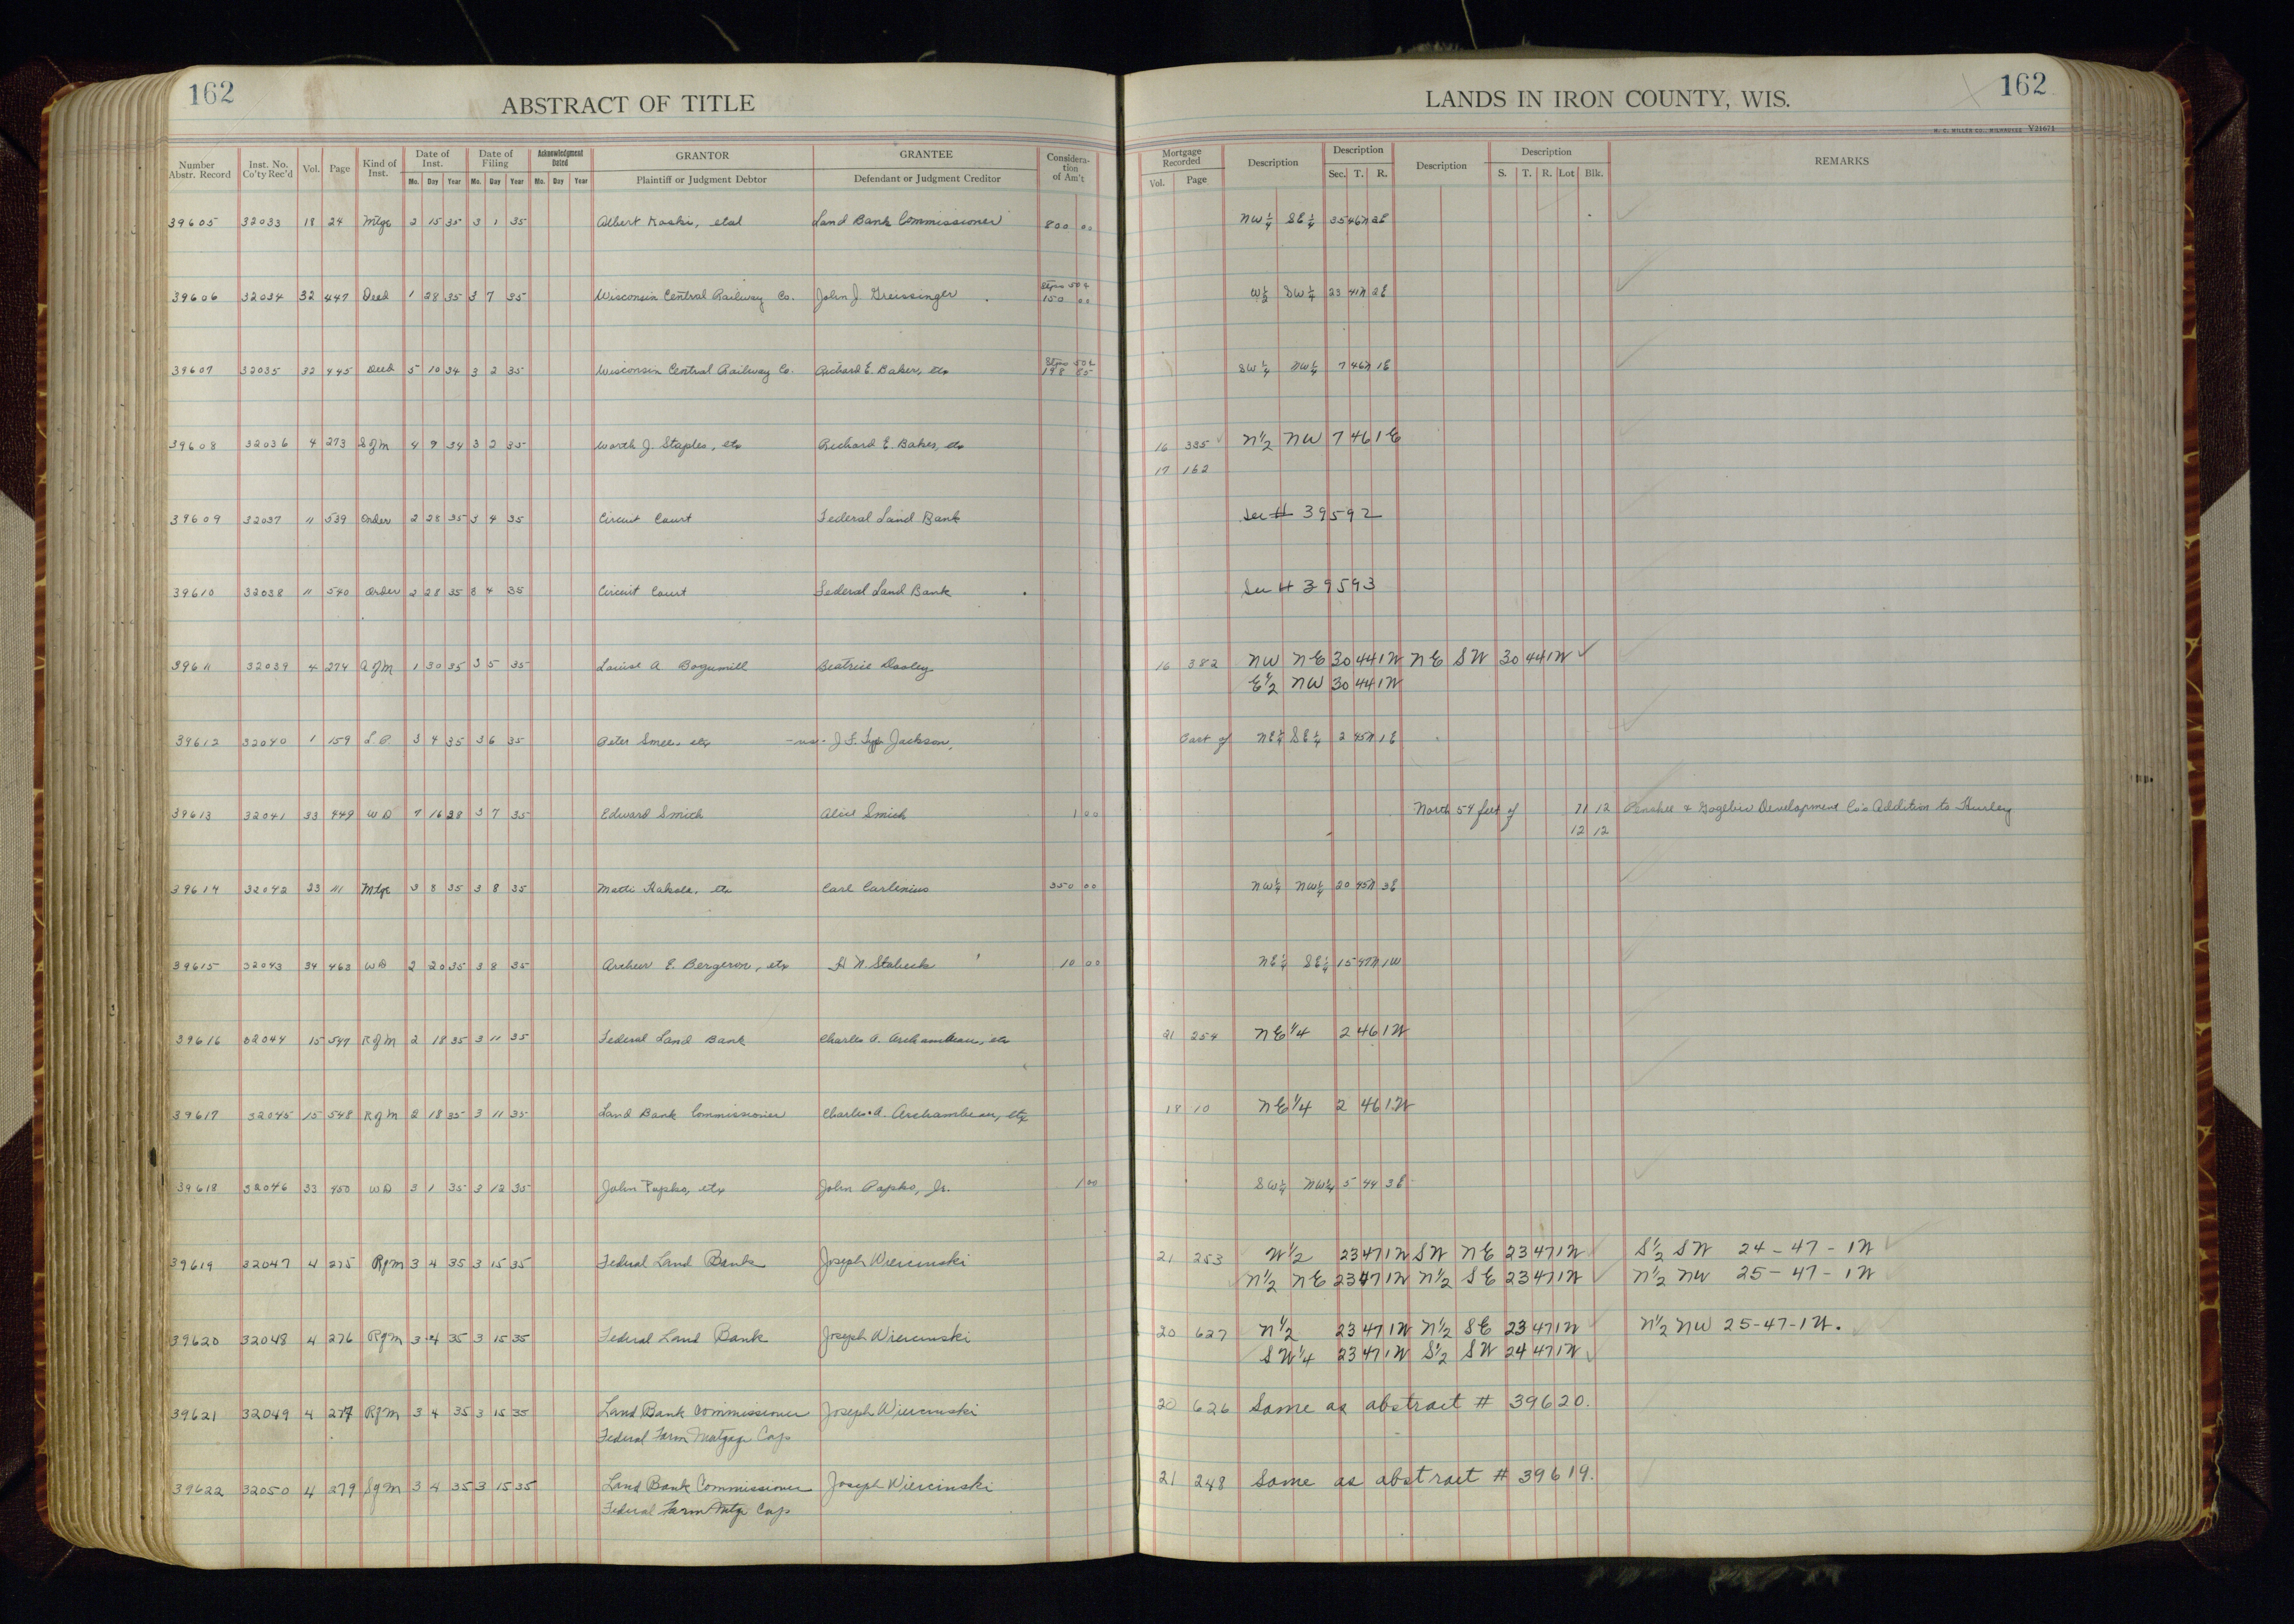 162
ABSTRACT OF TITLE
Number Abstr. Record Inst. No. Co'ty Rec'd Vol. Page Kind of Inst. Date of Inst. Date of Filing Acknowledgment Dated GRANTOR GRANTEE Considera-tion of Am't
Mo. Day Year Mo. Day Year Mo. Day Year Plaintiff or Judgment Debtor Defendant or Judgment Creditor
39605 32033 18 24 Mtge 2 15 35 3 1 35 Albert Koski, etal Land Bank Commissioner 800 00
39606 32034 32 447 Deed 1 28 35 3 7 35 Wisconsin Central Railway Co. John J Greissinger 150 00
39607 32035 32 445 Deed 5 10 34 3 2 35 Wisconsin Central Railway Co. Richard E. Baker, etx 198 85
39608 32036 4 273 S of M 4 9 34 3 2 35 Worth J. Staples, etx Richard E. Baker, etx
39609 32037 11 539 Order 2 28 35 3 4 35 Circuit Court Federal Land Bank
39610 32038 11 540 Order 2 28 35 3 4 35 Circuit Court Federal Land Bank
39611 32039 4 274 A of M 1 30 35 3 5 35 Louise A. Bogumill Beatrice Dooley
39612 32040 1 159 L.P. 3 4 35 3 6 35 Peter etx -vs- J. F. Jackson,
39613 32041 33 449 WD 7 16 28 3 7 35 Edward Smith Alice Smith 1 00
39614 32042 23 111 Mtge 3 8 35 3 8 35 Matti Kakela, etx Carl Carlenius 350 00
39615 32043 34 463 WD 2 20 35 3 8 35 Archeer E. Bergeron, etx A N. Stabeck 10 00
39616 32044 15 547 R of M 2 18 35 3 11 35 Federal Land Bank Charles A. Archambeau, etx
39617 32045 15 548 R of M 2 18 35 3 11 35 Land Bank Commissioner Charles A. Archambeau, etx
39618 32046 33 450 WD 3 1 35 3 12 35 John Popko, etx John Popko, Jr. 1 00
39619 32047 4 275 RfM 3 4 35 3 15 35 Federal Land Bank Joseph Wiercinski
39620 32048 4 276 RfM 3 4 35 3 15 35 Federal Land Bank Joseph Wiercinski
39621 32049 4 277 RfM 3 4 35 3 15 35 Land Bank Commissioner Joseph Wiercinski
Federal Farm Mortgage Corp
39622 32050 4 279 SfM 3 4 35 3 15 35 Land Bank Commissioner Joseph Wiercinski
Federal Farm Mtge Corp
162
LANDS IN IRON COUNTY, WIS.
H. C. MILLER CO., MILWAUKEE V21671
Mortgage Recorded Description Description Description Description REMARKS
Vol. Page Sec. T. R. S. T. R. Lot Blk.
NW¼ SE¼ 35 46N 2E
W½ SW¼ 23 41N 2E
SW¼ NW¼ 7 46N 1E
16 335 N½ NW 7 46 1E
17 162
See # 39592
See # 39593
16 382 NW NE 30 44 1W NE SW 30 44 1W
E½ NW 30 44 1W
Part of NE¼ SE¼ 2 45N 1E
North 54 feet of 11 12 Penokee & Gogebic Development Co's Addition to Hurley
12 12
NW¼ NW¼ 20 45N 3E
NE¼ SE¼ 15 47N 1W
21 254 NE¼ 2 46 1W
18 10 NE¼ 2 46 1W
SW¼ NW¼ 5 44 3E
21 253 W½ 23 47 1W SW NE 23 47 1W S½ SW 24-47-1W
N½ NE 23 47 1W N½ SE 23 47 1W N½ NW 25-47-1W
20 627 N½ 23 47 1W N½ SE 23 47 1W N½ NW 25-47-1W.
SW¼ 23 47 1W S½ SW 24 47 1W
20 626 Same as abstract # 39620.
21 248 Same as abstract # 39619.